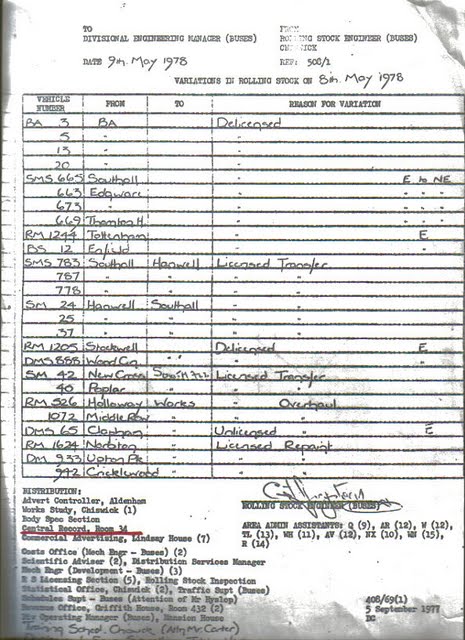 TO
DIVISIONAL ENGINEERING MANAGER (BUSES)
FROM
ROLLING STOCK ENGINEER (BUSES)
CHISWICK
DATE 9th May 1978
REF: 508/1
VARIATIONS IN ROLLING STOCK ON 8th May 1978
VEHICLE NUMBER FROM TO REASON FOR VARIATION
BA 3 BA Delicensed
5 " "
13 " "
20 " "
SMS 665 Southall " E to NE
663 Edgware " " " "
673 " " " " "
669 Thornton H. " " " "
RM 1244 Tottenham " E
BS 12 Enfield "
SMS 783 Southall Hanwell Licensed Transfer
787 " " " "
778 " " " "
SM 24 Hanwell Southall " "
25 " " " "
37 " " " "
RM 1205 Stockwell Delicensed E
DMS 888 Wood Gn " "
SM 42 New Cross Licensed Transfer
40 Poplar " " "
RM 526 Holloway Works " Overhaul
1072 Middle Row " " "
DMS 65 Clapham " Unlicensed " E
RM 1624 Norbiton " Licensed Repaint
DM 933 Upton Pk " " "
942 Cricklewood " " "
DISTRIBUTION:
Advert Controller, Aldenham
Works Study, Chiswick (1)
Body Spec Section
Central Record, Room 34
Commercial Advertising, Lindsay House (7)
Costs Office (Mech Engr - Buses) (2)
Scientific Adviser (2), Distribution Services Manager
Mech Engr (Development - Buses) (3)
R S Licensing Section (5), Rolling Stock Inspection
Statistical Office, Chiswick (2), Traffic Supt (Buses)
Schedules Supt - Buses (Attention of Mr Hyslop)
Revenue Office, Griffith House, Room 432 (2)
Div Operating Manager (Buses), Mansion House
Training School, Chiswick (Attn Mr Carter)
ROLLING STOCK ENGINEER (BUSES)
AREA ADMIN ASSISTANTS: Q (9), AR (12), W (12),
TL (13), WH (11), AV (12), NX (10), WN (15),
R (14)
408/69(1)
5 September 1977
DC